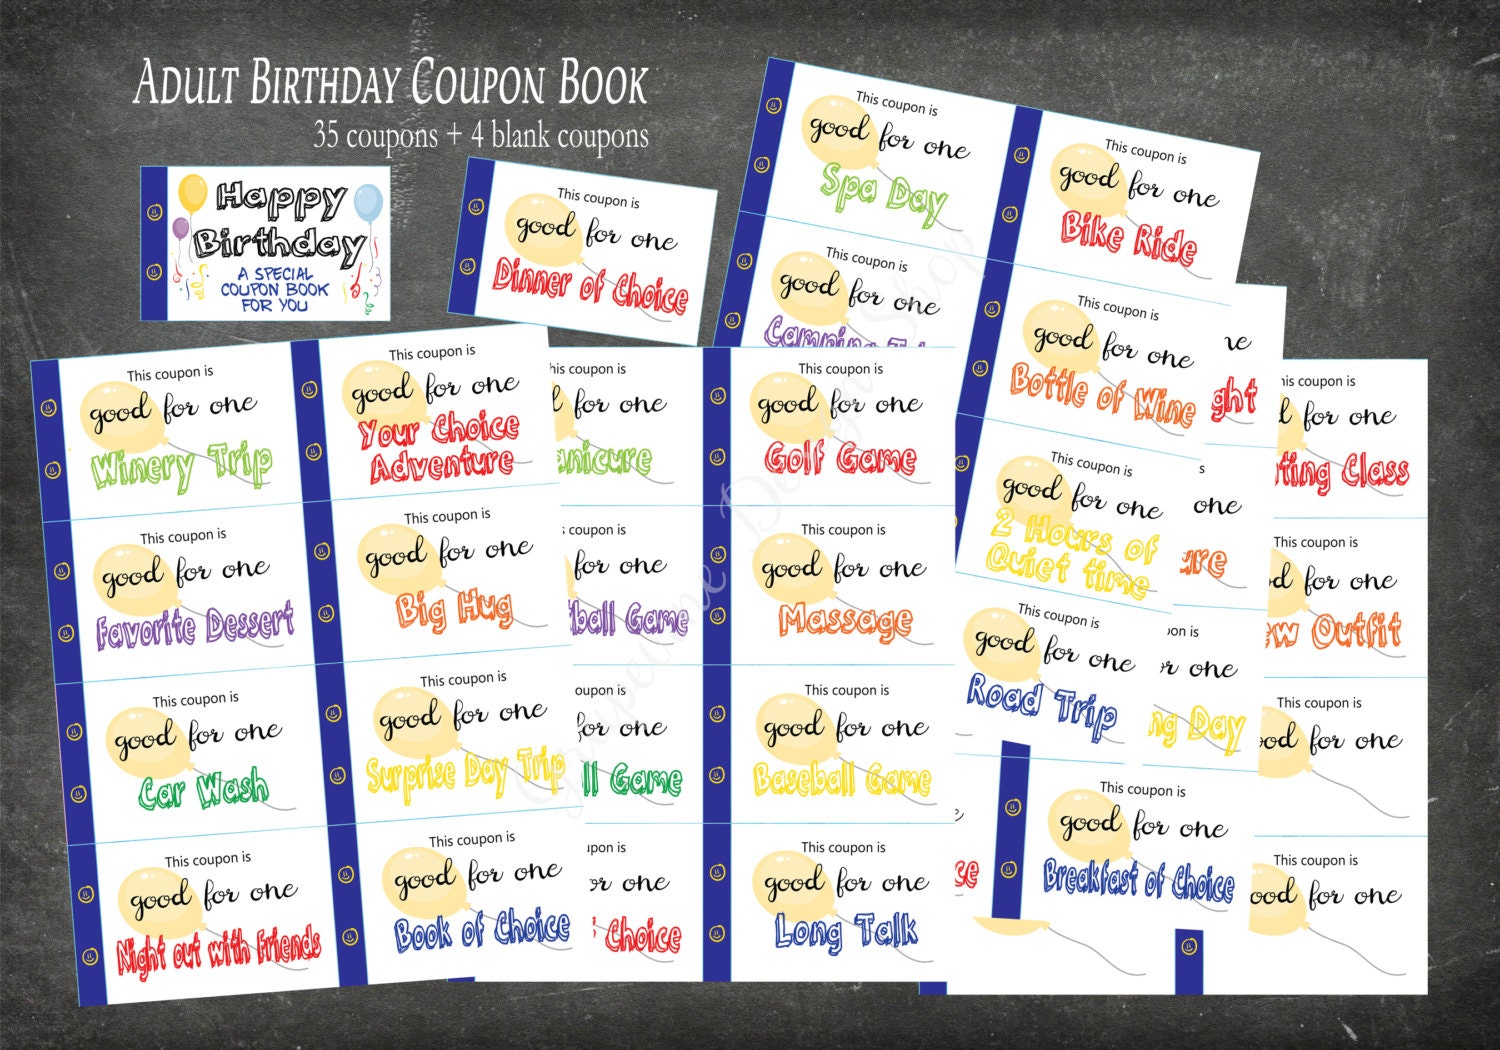 ADULT BIRTHDAY COUPON BOOK
35 coupons + 4 blank coupons
Happy
Birthday
A SPECIAL
COUPON BOOK
FOR YOU
This coupon is
good for one
Dinner of Choice
This coupon is
good for one
Spa Day
This coupon is
good for one
Bike Ride
This coupon is
good for one
This coupon is
good for one
Bottle of Wine
This coupon is
good for one
2 Hours of
Quiet time
This coupon is
good for one
Road Trip
This coupon is
good for one
Breakfast of Choice
This coupon is
good for one
Winery Trip
This coupon is
good for one
Your Choice
Adventure
This coupon is
good for one
Favorite Dessert
This coupon is
good for one
Big Hug
This coupon is
good for one
Car Wash
This coupon is
good for one
Surprise Day Trip
This coupon is
good for one
Night out with Friends
This coupon is
good for one
Book of Choice
coupon is
for one
coupon is
for one
Game
coupon is
for one
Game
coupon is
one
Choice
This coupon is
good for one
Golf Game
This coupon is
good for one
Massage
This coupon is
good for one
Baseball Game
This coupon is
good for one
Long Talk
one
is
one
Day
coupon is
for one
Class
This coupon is
for one
Outfit
This coupon is
for one
This coupon is
good for one